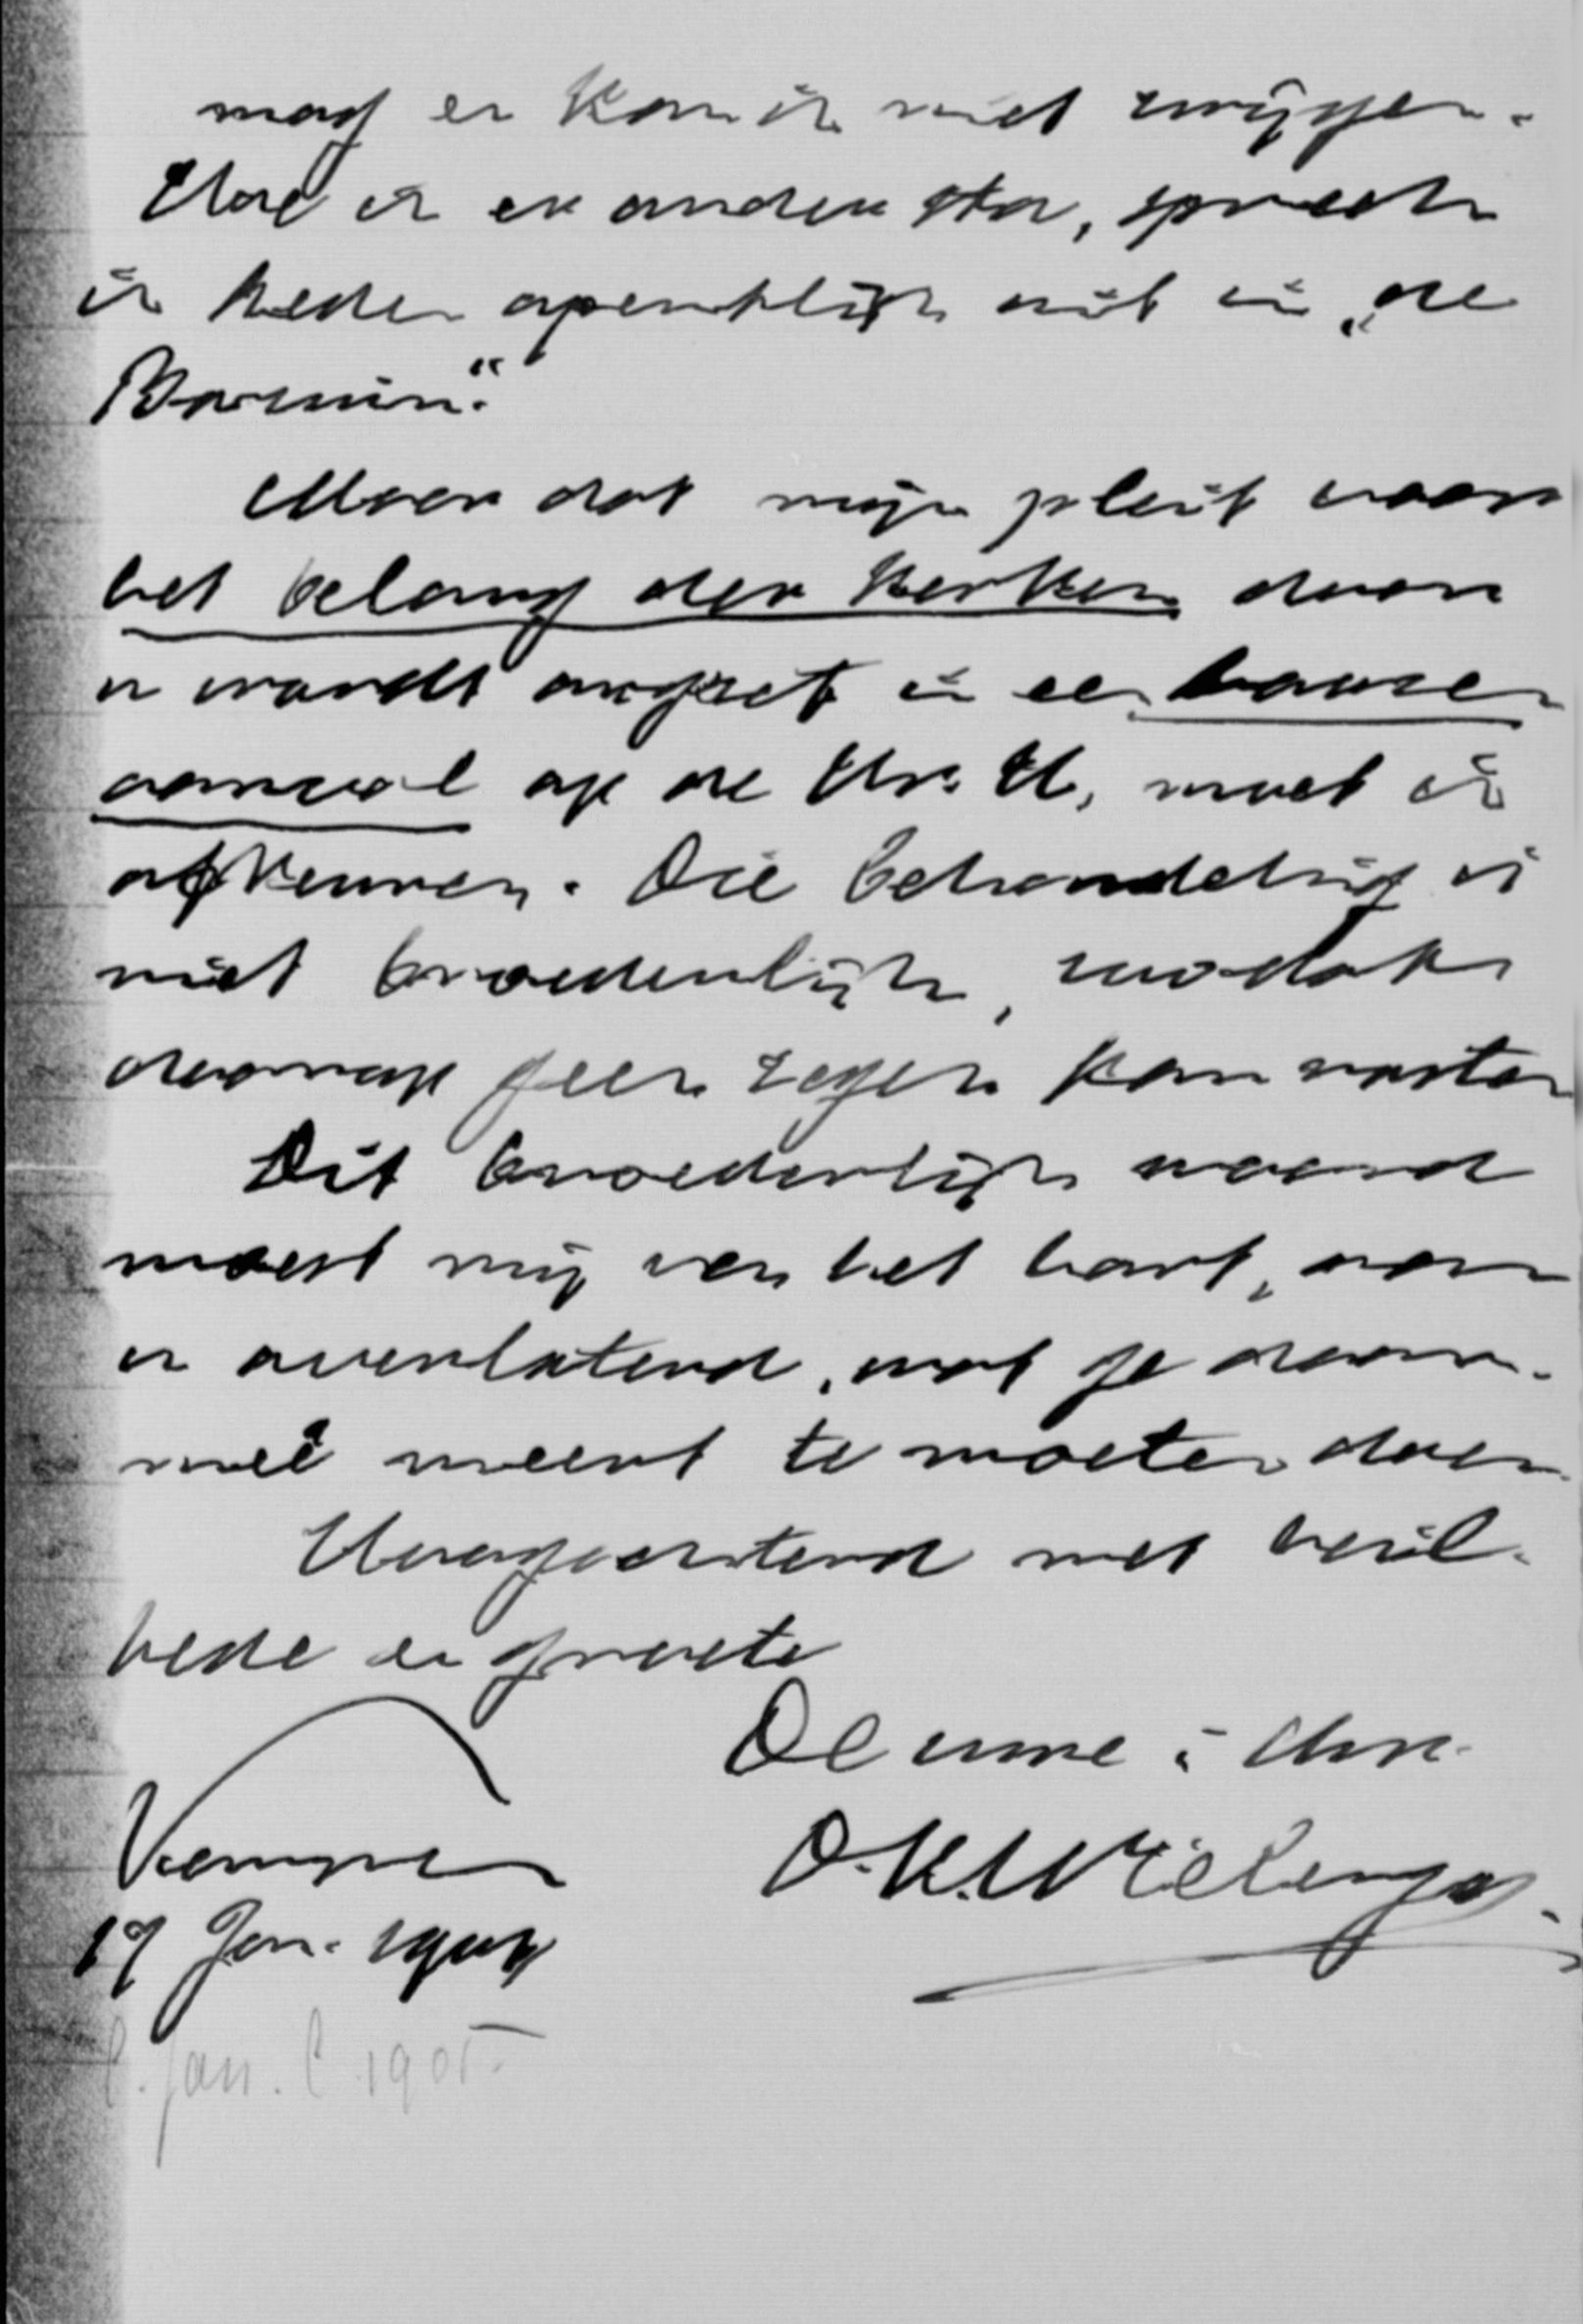 mag en kan ik niet zwijgen.
Hoe ik er onder sta, spreek
ik heden openlijk uit in „de
Bazuin."
Maar dat mijn pleit voor
het belang der Kerken door
u wordt omgezet in een boozen
aanval op de Vr. U, moet ik
afkeuren. Die behandeling is
niet broederlijk, zoodat
daarop geen zegen kan rusten
Dit broederlijk woord
moest mij van het hart, aan
u overlatend, wat ge daar-
meê meent te moeten doen.
Hoogachtend met heil-
bede en groete
De uwe i Chr.
Kampen D. K. Wielenga.
17 Jan. 1905
Jan. 1905